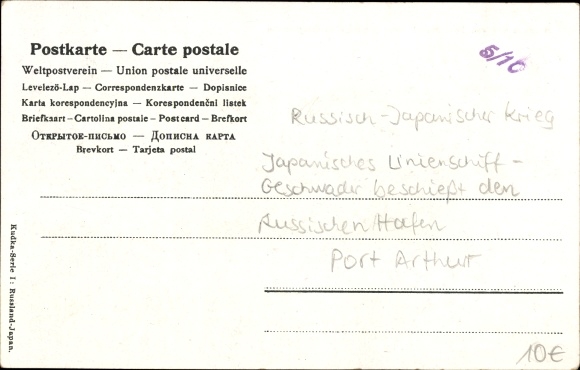 Postkarte — Carte postale
Weltpostverein — Union postale universelle
Levelező-Lap — Correspondenzkarte — Dopisnice
Karta korespondencyjna — Korespondenční listek
Briefkaart — Cartolina postale — Postcard — Brefkort
Открытое-письмо — Дописна карта
Brevkort — Tarjeta postal
5/10
Russisch-Japanischer Krieg
Japanisches Linienschiff-
Geschwader beschießt den
Russischen Hafen
Port Arthur
Kudka-Serie I: Russland-Japan.
10€